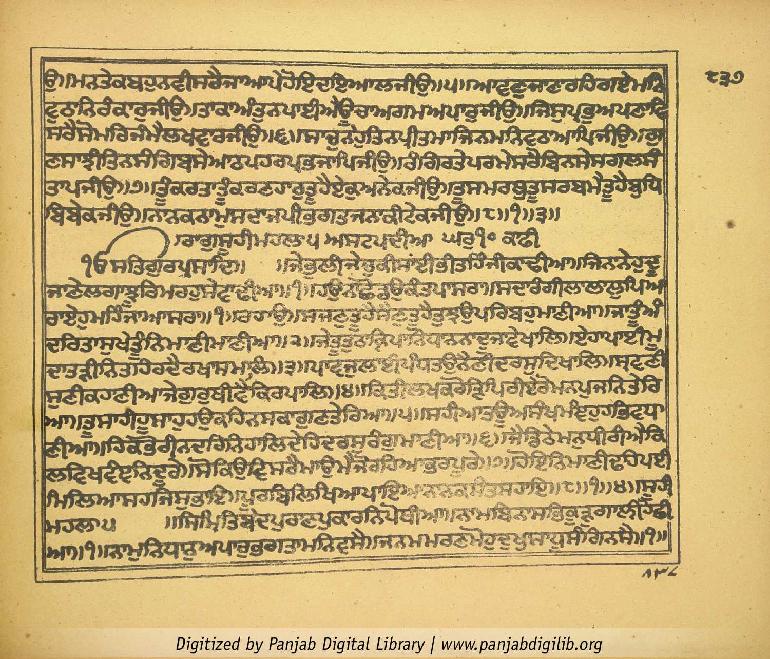 ੮੩੭
ੳ॥ਮਨਤੇਕਬਹੁਨਵੀਸਰੈਜਾਆਪੇਹੋਇਦਇਆਲਜੀਉ॥੫॥
ਸਰੈਸੋਮਰਿਜੰਮੈਲਖਵਾਰਜੀਉ॥੬॥ਸਾਚੁਨੇਹੁਤਿਨਪ੍ਰੀਤਮਾਜਿਨਮਨਿਵੁਠਾਆਪਿਜੀਉ॥ਗੁ
ਣਸਾਝੀਤਿਨਸੰਗਿਬਸੇਆਠਪਹਰਪ੍ਰਭਜਾਪਿਜੀਉ॥ਰੰਗਿਰਤੇਪਰਮੇਸਰੈਬਿਨਸੇਸਗਲਸੰ
ਤਾਪਜੀਉ॥੭॥ਤੂੰਕਰਤਾਤੂੰਕਰਣਹਾਰੁਤੂਹੈਏਕੁਅਨੇਕਜੀਉ॥ਤੂਸਮਰਥੁਤੂਸਰਬਮੈਤੂਹੈਬੁਧਿ
ਬਿਬੇਕਜੀਉ॥ਨਾਨਕਨਾਮੁਸਦਾਜਪੀਭਗਤਜਨਾਕੀਟੇਕਜੀਉ॥੮॥੧॥੩॥
ਰਾਗੁਸੂਹੀਮਹਲਾ੫ ਅਸਟਪਦੀਆ ਘਰੁ੧੦ ਕਾਫੀ
ੴਸਤਿਗੁਰਪ੍ਰਸਾਦਿ॥ ॥ਜੇਭੁਲੀਜੇਚੁਕੀਸਾਂਈਭੀਤਹਿੰਜੀਕਾਢੀਆ॥ਜਿਨਾਨੇਹੁਦੂ
ਜਾਣੇਲਗਾਝੂਰਿਮਰਹੁਸੇਵਾਢੀਆ॥੧॥ਹਉਨਾਛੋਡਉਕੰਤਪਾਸਰਾ॥ਸਦਾਰੰਗੀਲਾਲਾਲੁਪਿਆ
ਰਾਏਹੁਮਹਿੰਜਾਆਸਰਾ॥੧॥ਰਹਾਉ॥ਸਜਣੁਤੂਹੈਸੈਣੁਤੂਮੈਤੁਝਉਪਰਿਬਹੁਮਾਣੀਆ॥ਜਾਤੂਅੰ
ਦਰਿਤਾਸੁਖੇਤੂੰਨਿਮਾਣੀਮਾਣੀਆ॥੨॥ਜੇਤੂਤੁਠਾਕ੍ਰਿਪਾਨਿਧਾਨਨਾਦੂਜਾਵੇਖਾਲਿ॥ਏਹਾਪਾਈਮੂ
ਦਾਤੜੀਨਿਤਹਿਰਦੈਰਖਾਸਮਾਲਿ॥੩॥ਪਾਵਜੁਲਾਈਪੰਧਤਉਨੈਣੀਦਰਸੁਦਿਖਾਲਿ॥ਸ੍ਰਵਣੀ
ਸੁਣੀਕਹਾਣੀਆਜੇਗੁਰੁਥੀਵੈਕਿਰਪਾਲਿ॥੪॥ਕਿਤੀਲਖਕਰੋੜਿਪਿਰੀਏਰੋਮਨਪੁਜਨਿਤੇਰਿ
ਆ॥ਤੂਸਾਹੀਹੂਸਾਹੁਹਉਕਹਿਨਸਕਾਗੁਣਤੇਰਿਆ॥੫॥ਸਹੀਆਤਊਅਸੰਖਮੰਞਹੁਹਭਿਵਧਾ
ਣੀਆ॥ਹਿਕਭੋਰੀਨਦਰਿਨਿਹਾਲਿਦੇਹਿਦਰਸੁਰੰਗੁਮਾਣੀਆ॥੬॥ਜੈਡਿਠੇਮਨੁਧੀਰੀਐਕਿ
ਲਵਿਖਵੰਞਨਿਦੂਰੇ॥ਸੋਕਿਉਵਿਸਰੈਮਾਉਮੈਜੋਰਹਿਆਭਰਪੂਰੇ॥੭॥ਹੋਇਨਿਮਾਣੀਢਹਿਪਈ
ਮਿਲਿਆਸਹਜਿਸੁਭਾਇ॥ਪੂਰਬਿਲਿਖਿਆਪਾਇਆਨਾਨਕਸੰਤਸਹਾਇ॥੮॥੧॥੪॥ਸੂਹੀ
ਮਹਲਾ੫ ॥ਸਿਮ੍ਰਿਤਿਬੇਦਪੁਰਾਣਪੁਕਾਰਨਿਪੋਥੀਆ॥ਨਾਮਬਿਨਾਸਭਿਕੂੜੁਗਾਲੀਹੋਛੀ
ਆ॥੧॥ਨਾਮੁਨਿਧਾਨੁਅਪਾਰੁਭਗਤਾਮਨਿਵਸੈ॥ਜਨਮਮਰਣਮੋਹੁਦੁਖੁਸਾਧੂਸੰਗਿਨਸੈ॥੧॥
Digitized by Panjab Digital Library | www.panjabdigilib.org